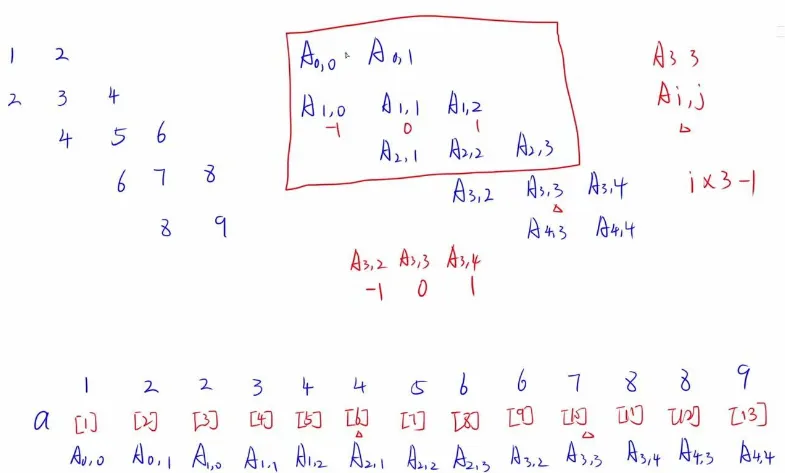 1 2
2 3 4
4 5 6
6 7 8
8 9
A0,0 A0,1
A1,0 A1,1 A1,2
-1 0 1
A2,1 A2,2 A2,3
A3,2 A3,3 A3,4
A4,3 A4,4
A3,2 A3,3 A3,4
-1 0 1
A3 3
Ai,j
i×3-1
1 2 2 3 4 4 5 6 6 7 8 8 9
a [1] [2] [3] [4] [5] [6] [7] [8] [9] [10] [11] [12] [13]
A0,0 A0,1 A1,0 A1,1 A1,2 A2,1 A2,2 A2,3 A3,2 A3,3 A3,4 A4,3 A4,4